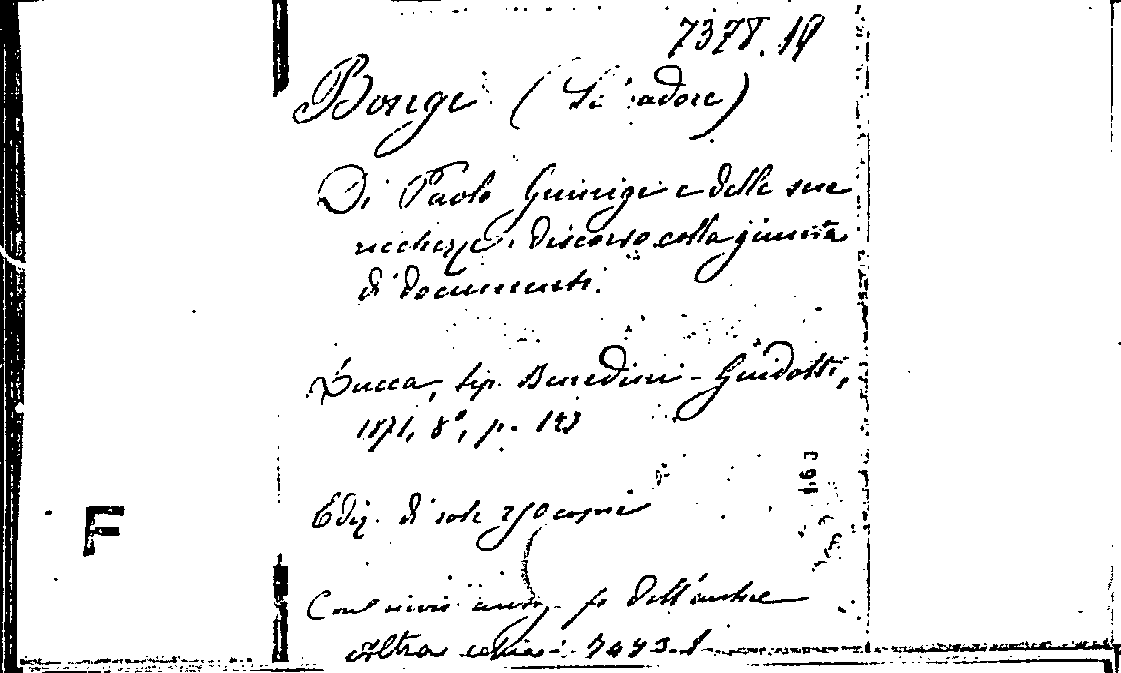 7378.19
Bongi (Salvadore)
Di Paolo Guinigi e delle sue
ricchezze. Discorso colla giunta
di documenti.
Lucca, tip. Benedini-Guidotti,
1871, 8°, p. 123
Ediz. di sole 250 copie
163
F
Con invio aut. dell'autore
Altra copia: 7493.1